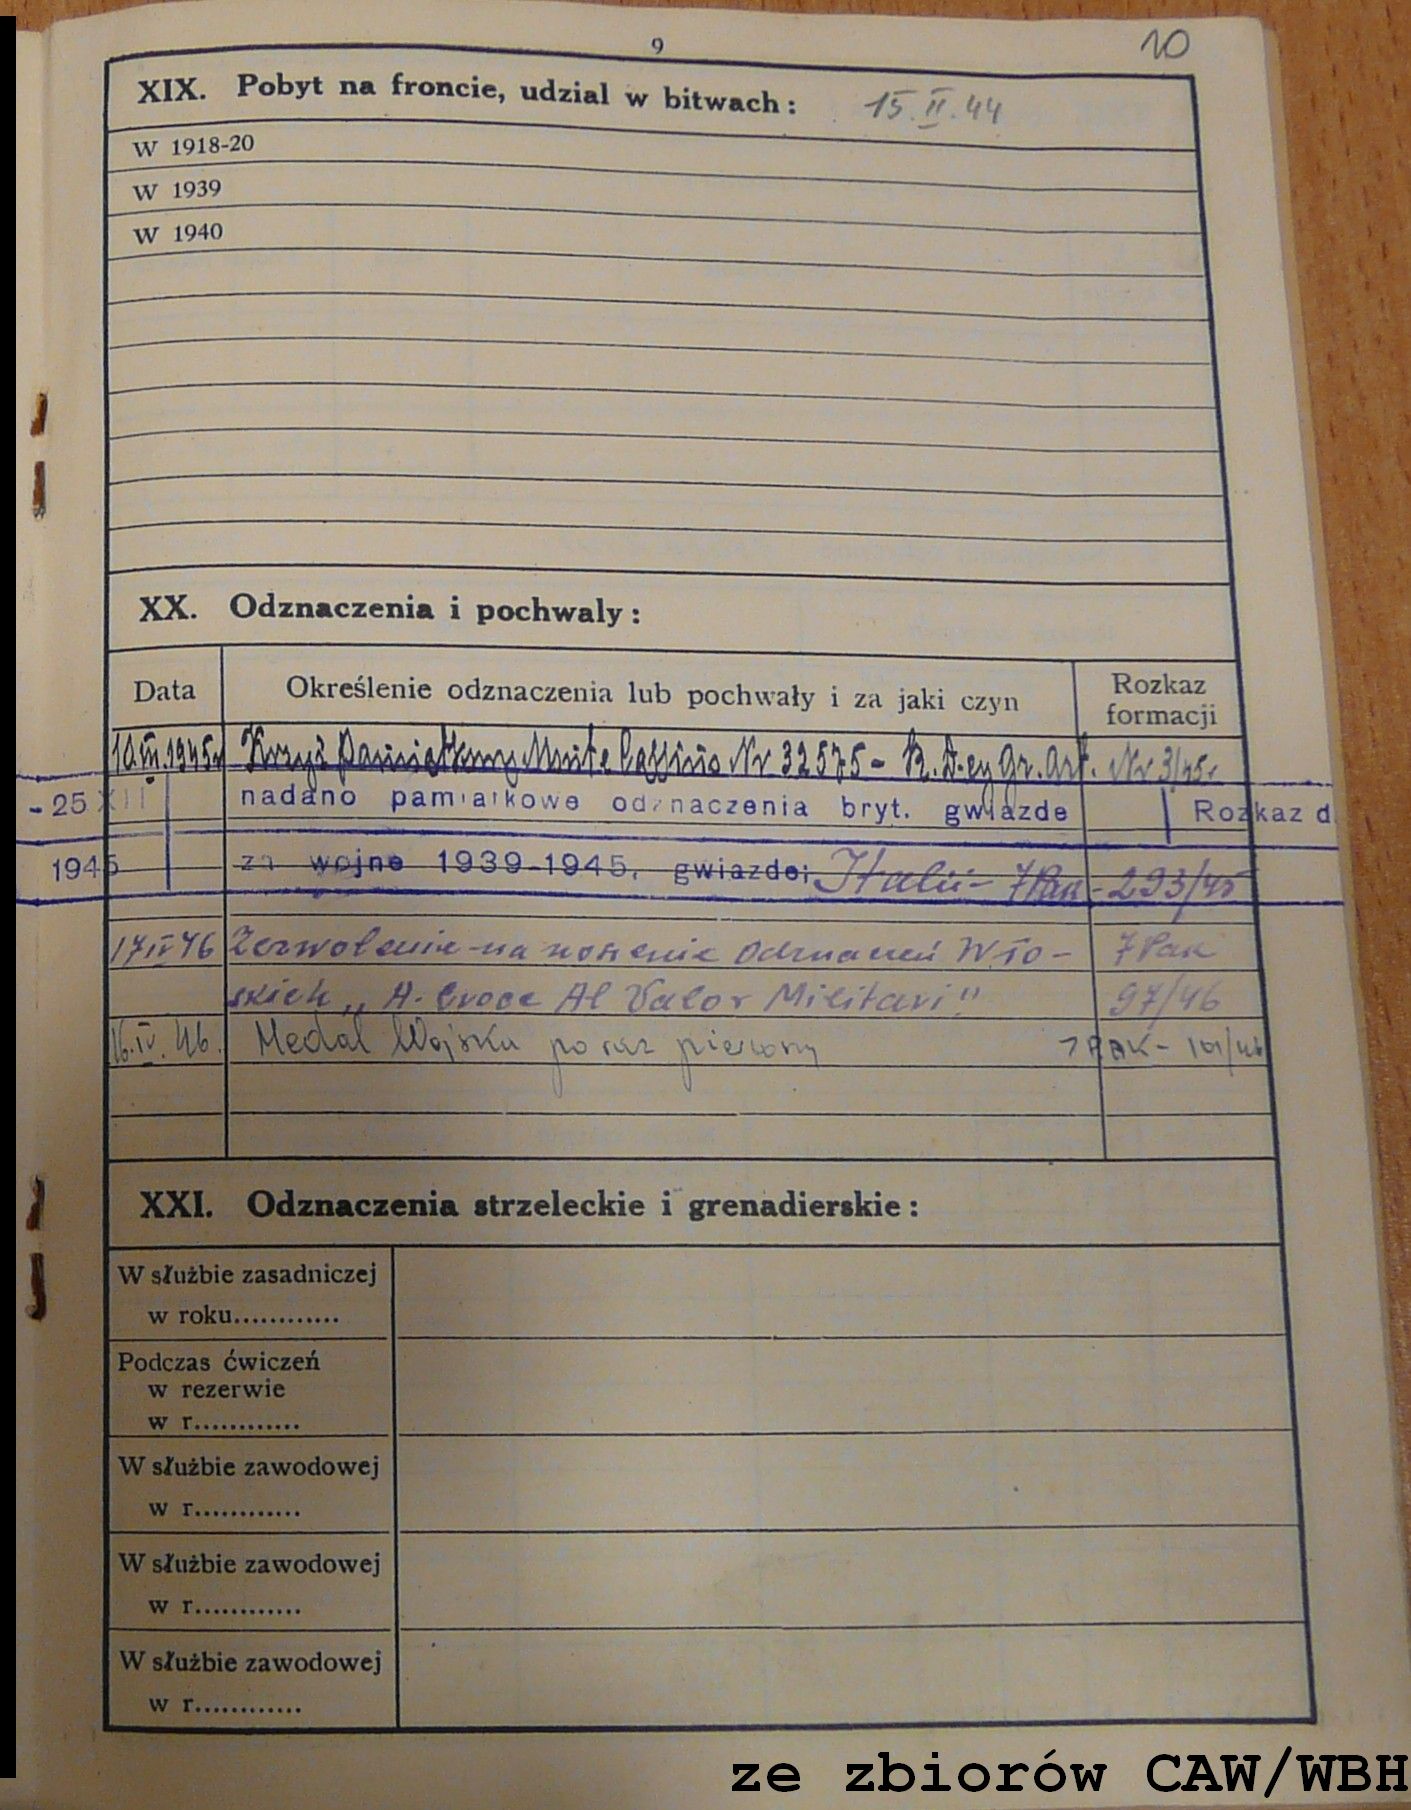 9
10
XIX. Pobyt na froncie, udzial w bitwach: 15.II.44
W 1918-20
W 1939
W 1940
XX. Odznaczenia i pochwaly:
Data Określenie odznaczenia lub pochwały i za jaki czyn Rozkaz formacji
10.III.1945r Krzyż Pamiątkowy Monte Cassino Nr 32575 - R. D-cy Gr. Art. Nr 3/45r
- 25 XII nadano pamiątkowe odznaczenia bryt. gwiazde Rozkaz d
1945 za wojne 1939-1945, gwiazde; Italii - 7Pak - 293/45
17 IV 46 Zezwolenie na noszenie odznaczeń Wło- 7Pak
skich "A. Croce Al Valor Militari" 97/46
16.IV.46. Medal Wojska po raz pierwszy 7PAK - 101/46
XXI. Odznaczenia strzeleckie i grenadierskie:
W służbie zasadniczej
w roku............
Podczas ćwiczeń
w rezerwie
w r............
W służbie zawodowej
w r............
W służbie zawodowej
w r............
W służbie zawodowej
w r............
ze zbiorów CAW/WBH